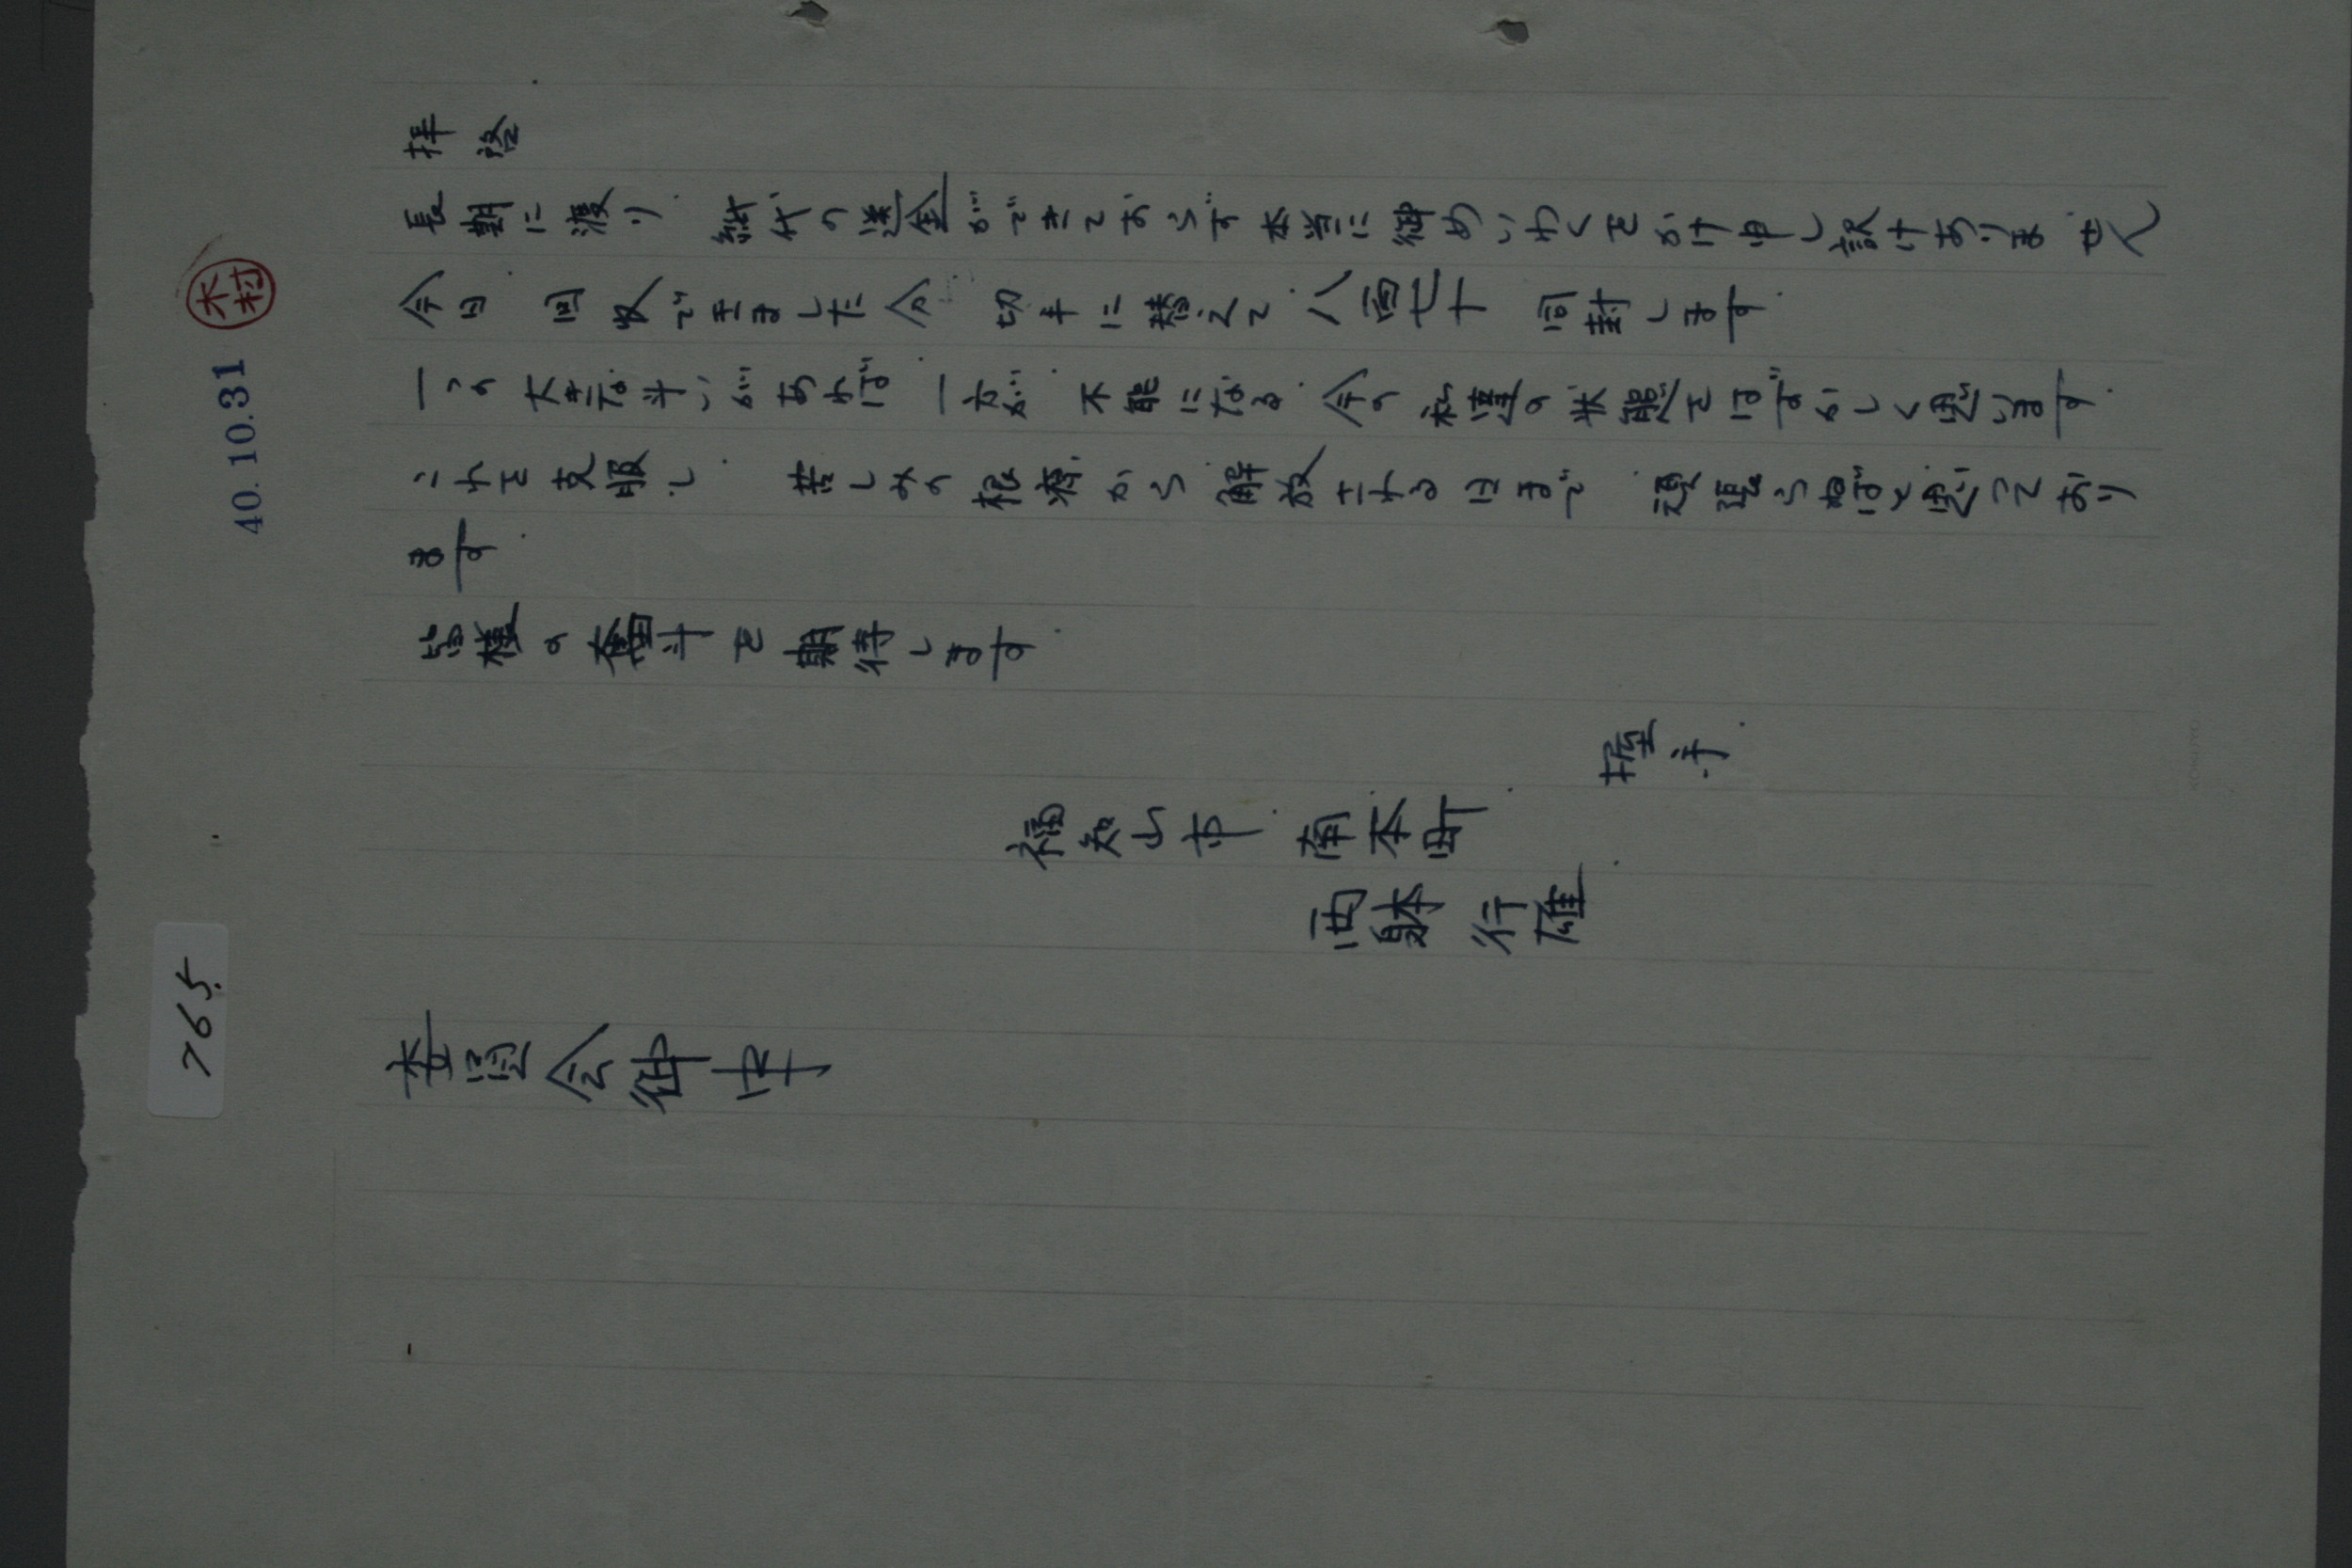 木村
40.10.31
拝啓
長期に渡り、紙代の送金ができておらず本当に御めいわくをかけ申し訳けありません
今回、回収できました分、切手に替えて八百七十 同封します。
一つの大きな斗いがあれば一方が、不能になる、今の私達の状態をはずかしく思います。
これを克服し、苦しみの根源から解放される日まで、頑張らねばと思っており
ます。
皆様の奮斗を期待します。
握手.
福知山市、南本町、
西躰 行雄.
荊冠会御中
765.